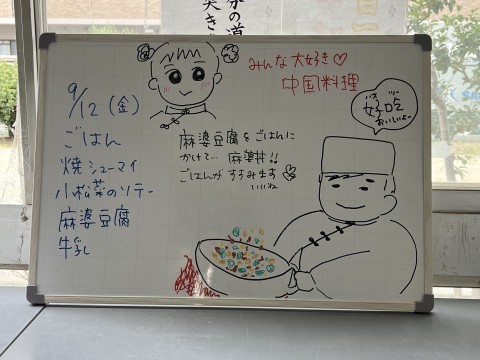 9/12(金)
ごはん
焼シューマイ
小松菜のソテー
麻婆豆腐
牛乳
みんな大好き♡
中国料理
麻婆豆腐をごはんに
かけて… 麻婆丼!!
ごはんがすすみます
いいね
好吃
おいしいよー